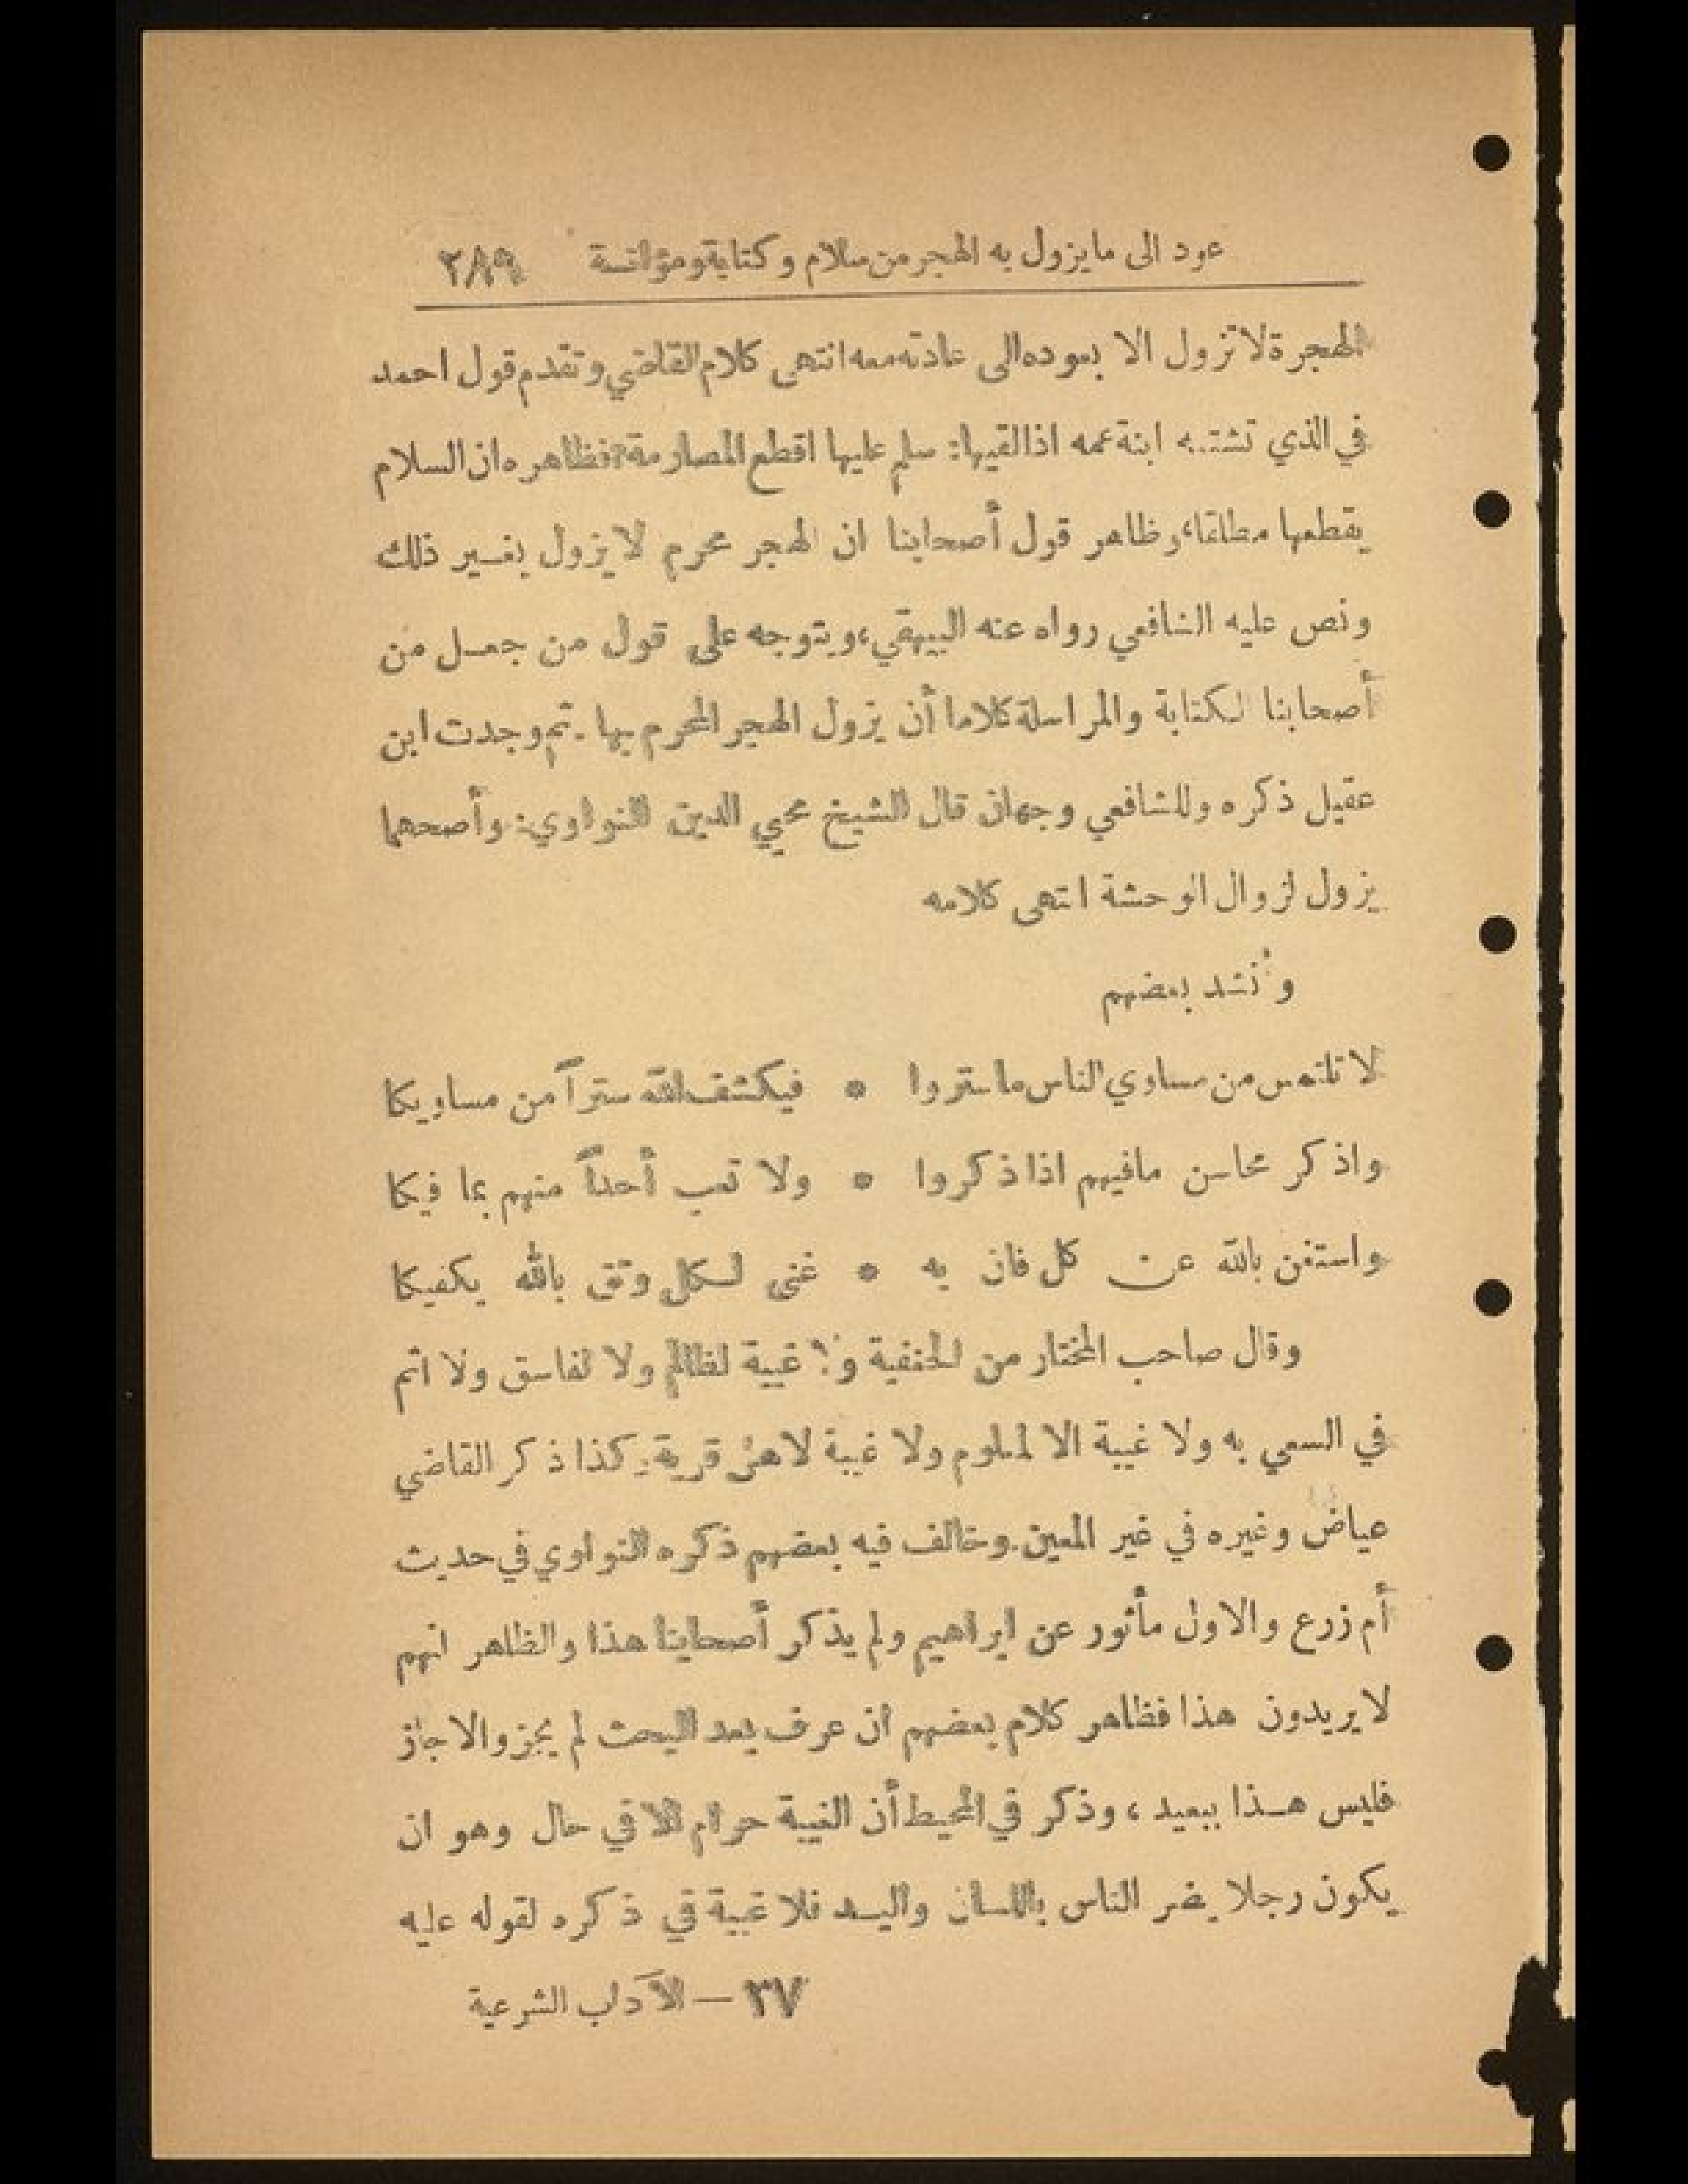 عود الى ما يزول به الهجر من سلام وكتابة ومؤانسة ٢٨٩
الهجرة لا تزول الا بعوده الى عادته معه انتهى كلام القاضي وتقدم قول احمد
في الذي تشتمه ابنة عمه اذا لقيها: سلم عليها اقطع المصارمة، فظاهره ان السلام
يقطعها مطلقا، وظاهر قول أصحابنا ان الهجر محرم لا يزول بغير ذلك
ونص عليه الشافعي رواه عنه البيهقي، ويتوجه على قول من جعل من
أصحابنا الكتابة والمراسلة كلاما أن يزول الهجر المحرم بها. ثم وجدت ابن
عقيل ذكره وللشافعي وجهان قال الشيخ محيي الدين النواوي: وأصحهما
يزول لزوال الوحشة انتهى كلامه
وأنشد بعضهم
لا تلتمس من مساوي الناس ما ستروا * فيكشف الله ستراً من مساويكا
واذكر محاسن ما فيهم اذا ذكروا * ولا تعب أحداً منهم بما فيكا
واستغن بالله عن كل فان به * غنى لكل وثق بالله يكفيكا
وقال صاحب المختار من الحنفية ولا غيبة لظالم ولا لفاسق ولا اثم
في السعي به ولا غيبة الا لمعلوم ولا غيبة لاهل قرية. كذا ذكر القاضي
عياض وغيره في غير المعين. وخالف فيه بعضهم ذكره النواوي في حديث
أم زرع والاول مأثور عن ابراهيم ولم يذكر أصحابنا هذا والظاهر انهم
لا يريدون هذا فظاهر كلام بعضهم ان عرف بعد البحث لم يجز والا جاز
فليس هذا ببعيد، وذكر في المحيط أن الغيبة حرام الا في حال وهو ان
يكون رجلا يضر الناس باللسان واليد فلا غيبة في ذكره لقوله عليه
٣٧ — الآداب الشرعية